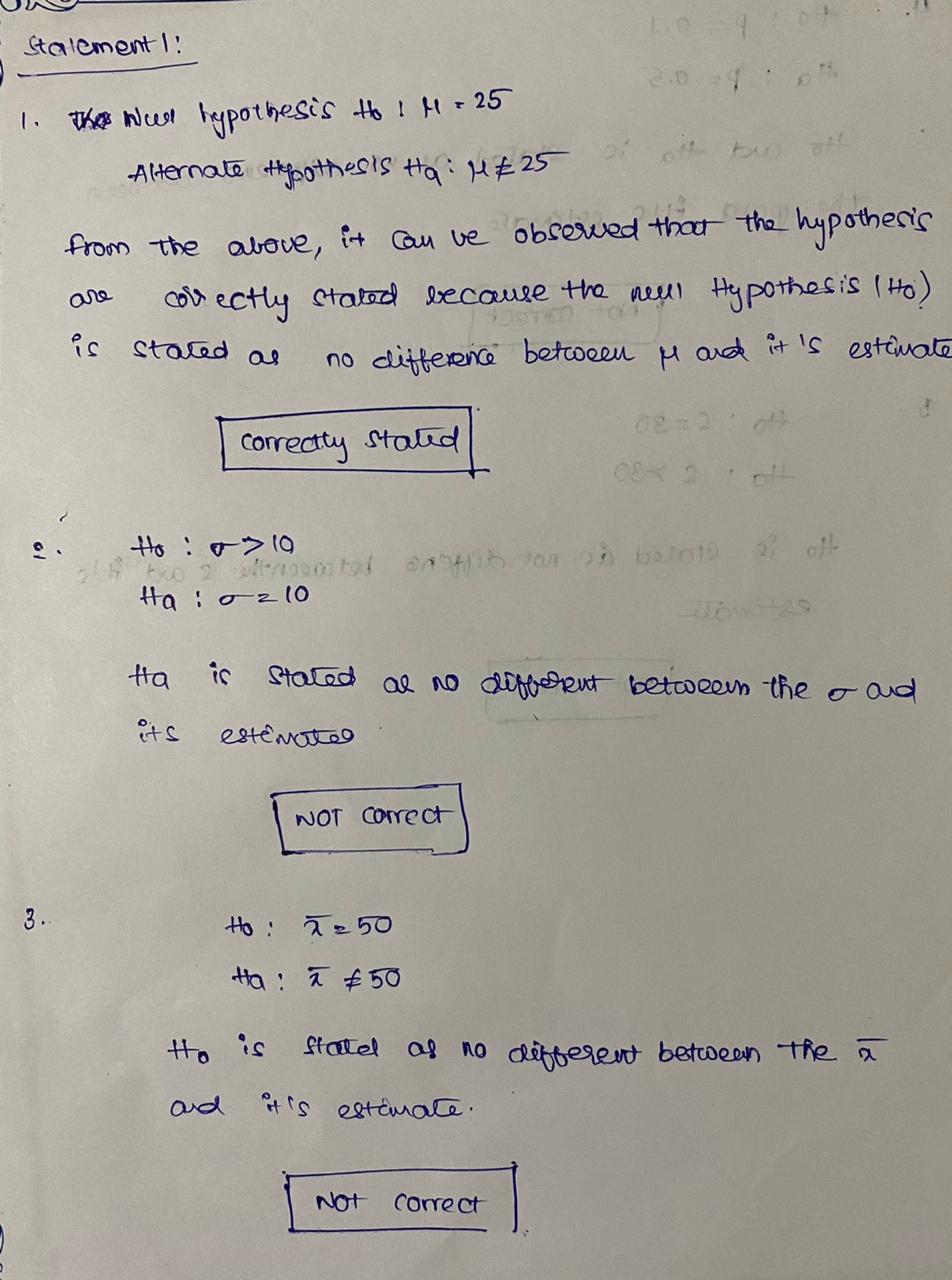 Statement 1:
1. Null hypothesis H0 : μ = 25
Alternate Hypothesis Ha : μ ≠ 25
from the above, it can be observed that the hypothesis
are correctly stated because the null Hypothesis (H0)
is stated as no difference between μ and it's estimate
correctly stated
2. H0 : σ > 10
Ha : σ = 10
Ha is stated as no different between the σ and
its estimates
NOT correct
3. H0 : x̄ = 50
Ha : x̄ ≠ 50
H0 is stated as no different between the x̄
and it's estimate.
Not correct